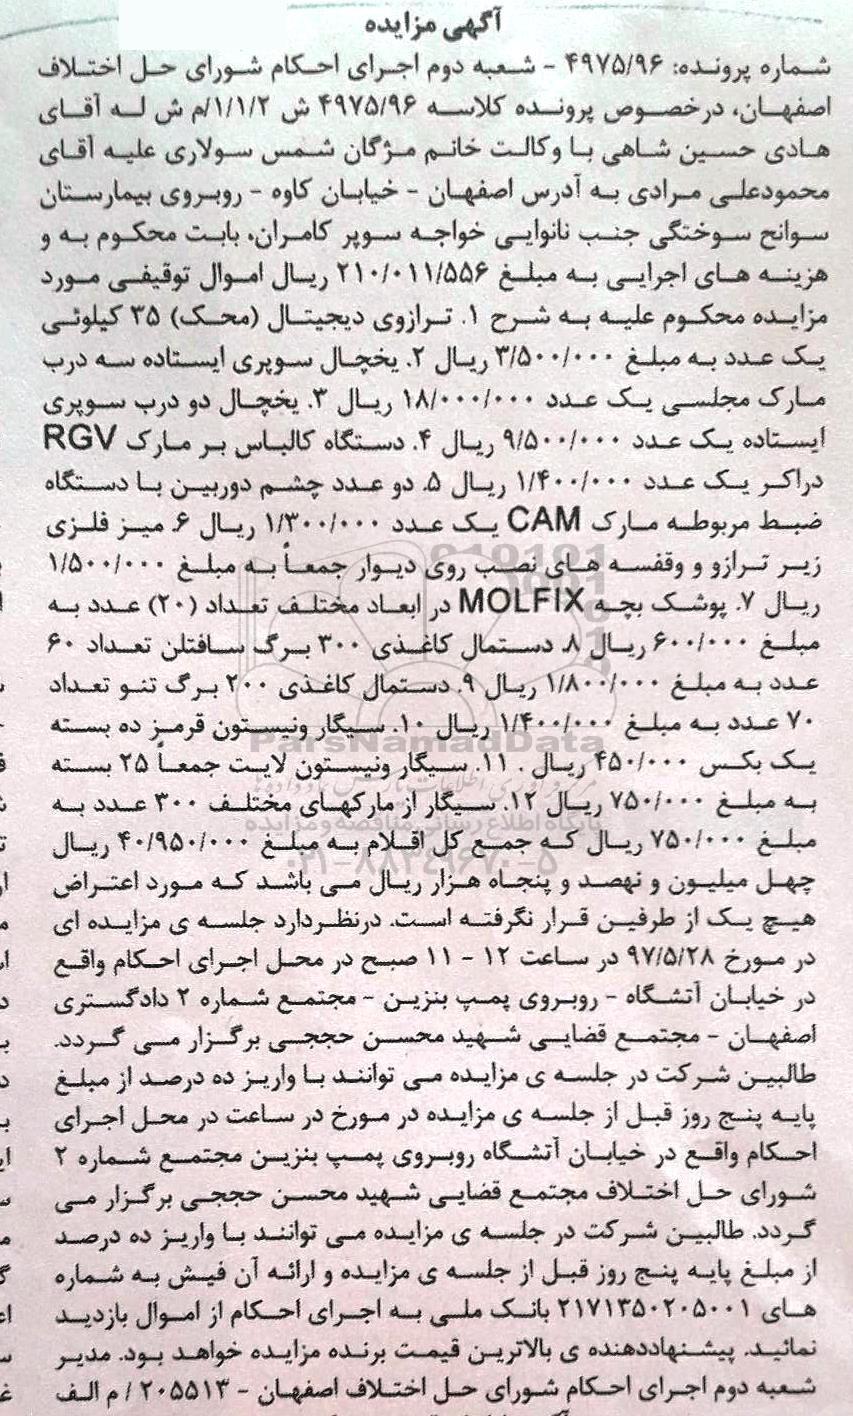 آگهی مزایده
شماره پرونده: ۴۹۷۵/۹۶ - شعبه دوم اجرای احکام شورای حل اختلاف
اصفهان، درخصوص پرونده کلاسه ۴۹۷۵/۹۶ ش ۱/۱/۲/م ش له آقای
هادی حسین شاهی با وکالت خانم مژگان شمس سولاری علیه آقای
محمودعلی مرادی به آدرس اصفهان - خیابان کاوه - روبروی بیمارستان
سوانح سوختگی جنب نانوایی خواجه سوپر کامران، بابت محکوم به و
هزینه های اجرایی به مبلغ ۲۱۰/۰۱۱/۵۵۶ ریال اموال توقیفی مورد
مزایده محکوم علیه به شرح ۱. ترازوی دیجیتال (محک) ۳۵ کیلوئی
یک عدد به مبلغ ۳/۵۰۰/۰۰۰ ریال ۲. یخچال سوپری ایستاده سه درب
مارک مجلسی یک عدد ۱۸/۰۰۰/۰۰۰ ریال ۳. یخچال دو درب سوپری
ایستاده یک عدد ۹/۵۰۰/۰۰۰ ریال ۴. دستگاه کالباس بر مارک RGV
دراکر یک عدد ۱/۴۰۰/۰۰۰ ریال ۵. دو عدد چشم دوربین با دستگاه
ضبط مربوطه مارک CAM یک عدد ۱/۳۰۰/۰۰۰ ریال ۶. میز فلزی
زیر ترازو و وقفسه های نصب روی دیوار جمعاً به مبلغ ۱/۵۰۰/۰۰۰
ریال ۷. پوشک بچه MOLFIX در ابعاد مختلف تعداد (۲۰) عدد به
مبلغ ۶۰۰/۰۰۰ ریال ۸. دستمال کاغذی ۳۰۰ برگ سافتلن تعداد ۶۰
عدد به مبلغ ۱/۸۰۰/۰۰۰ ریال ۹. دستمال کاغذی ۲۰۰ برگ تنو تعداد
۷۰ عدد به مبلغ ۱/۴۰۰/۰۰۰ ریال ۱۰. سیگار ونیستون قرمز ده بسته
یک بکس ۴۵۰/۰۰۰ ریال . ۱۱. سیگار ونیستون لایت جمعاً ۲۵ بسته
به مبلغ ۷۵۰/۰۰۰ ریال ۱۲. سیگار از مارکهای مختلف ۳۰۰ عدد به
مبلغ ۷۵۰/۰۰۰ ریال که جمع کل اقلام به مبلغ ۴۰/۹۵۰/۰۰۰ ریال
چهل میلیون و نهصد و پنجاه هزار ریال می باشد که مورد اعتراض
هیچ یک از طرفین قرار نگرفته است. درنظردارد جلسه ی مزایده ای
در مورخ ۹۷/۵/۲۸ در ساعت ۱۲ - ۱۱ صبح در محل اجرای احکام واقع
در خیابان آتشگاه - روبروی پمپ بنزین - مجتمع شماره ۲ دادگستری
اصفهان - مجتمع قضایی شهید محسن حججی برگزار می گردد.
طالبین شرکت در جلسه ی مزایده می توانند با واریز ده درصد از مبلغ
پایه پنج روز قبل از جلسه ی مزایده در مورخ در ساعت در محل اجرای
احکام واقع در خیابان آتشگاه روبروی پمپ بنزین مجتمع شماره ۲
شورای حل اختلاف مجتمع قضایی شهید محسن حججی برگزار می
گردد. طالبین شرکت در جلسه ی مزایده می توانند با واریز ده درصد
از مبلغ پایه پنج روز قبل از جلسه ی مزایده و ارائه آن فیش به شماره
های ۲۱۷۱۳۵۰۲۰۵۰۰۱ بانک ملی به اجرای احکام از اموال بازدید
نمائید. پیشنهاددهنده ی بالاترین قیمت برنده مزایده خواهد بود. مدیر
شعبه دوم اجرای احکام شورای حل اختلاف اصفهان - ۲۰۵۵۱۳ / م الف
ParsNamadData
پایگاه اطلاع رسانی مناقصه و مزایده
۰۲۱-۸۸۳۴۹۶۷۰-۵